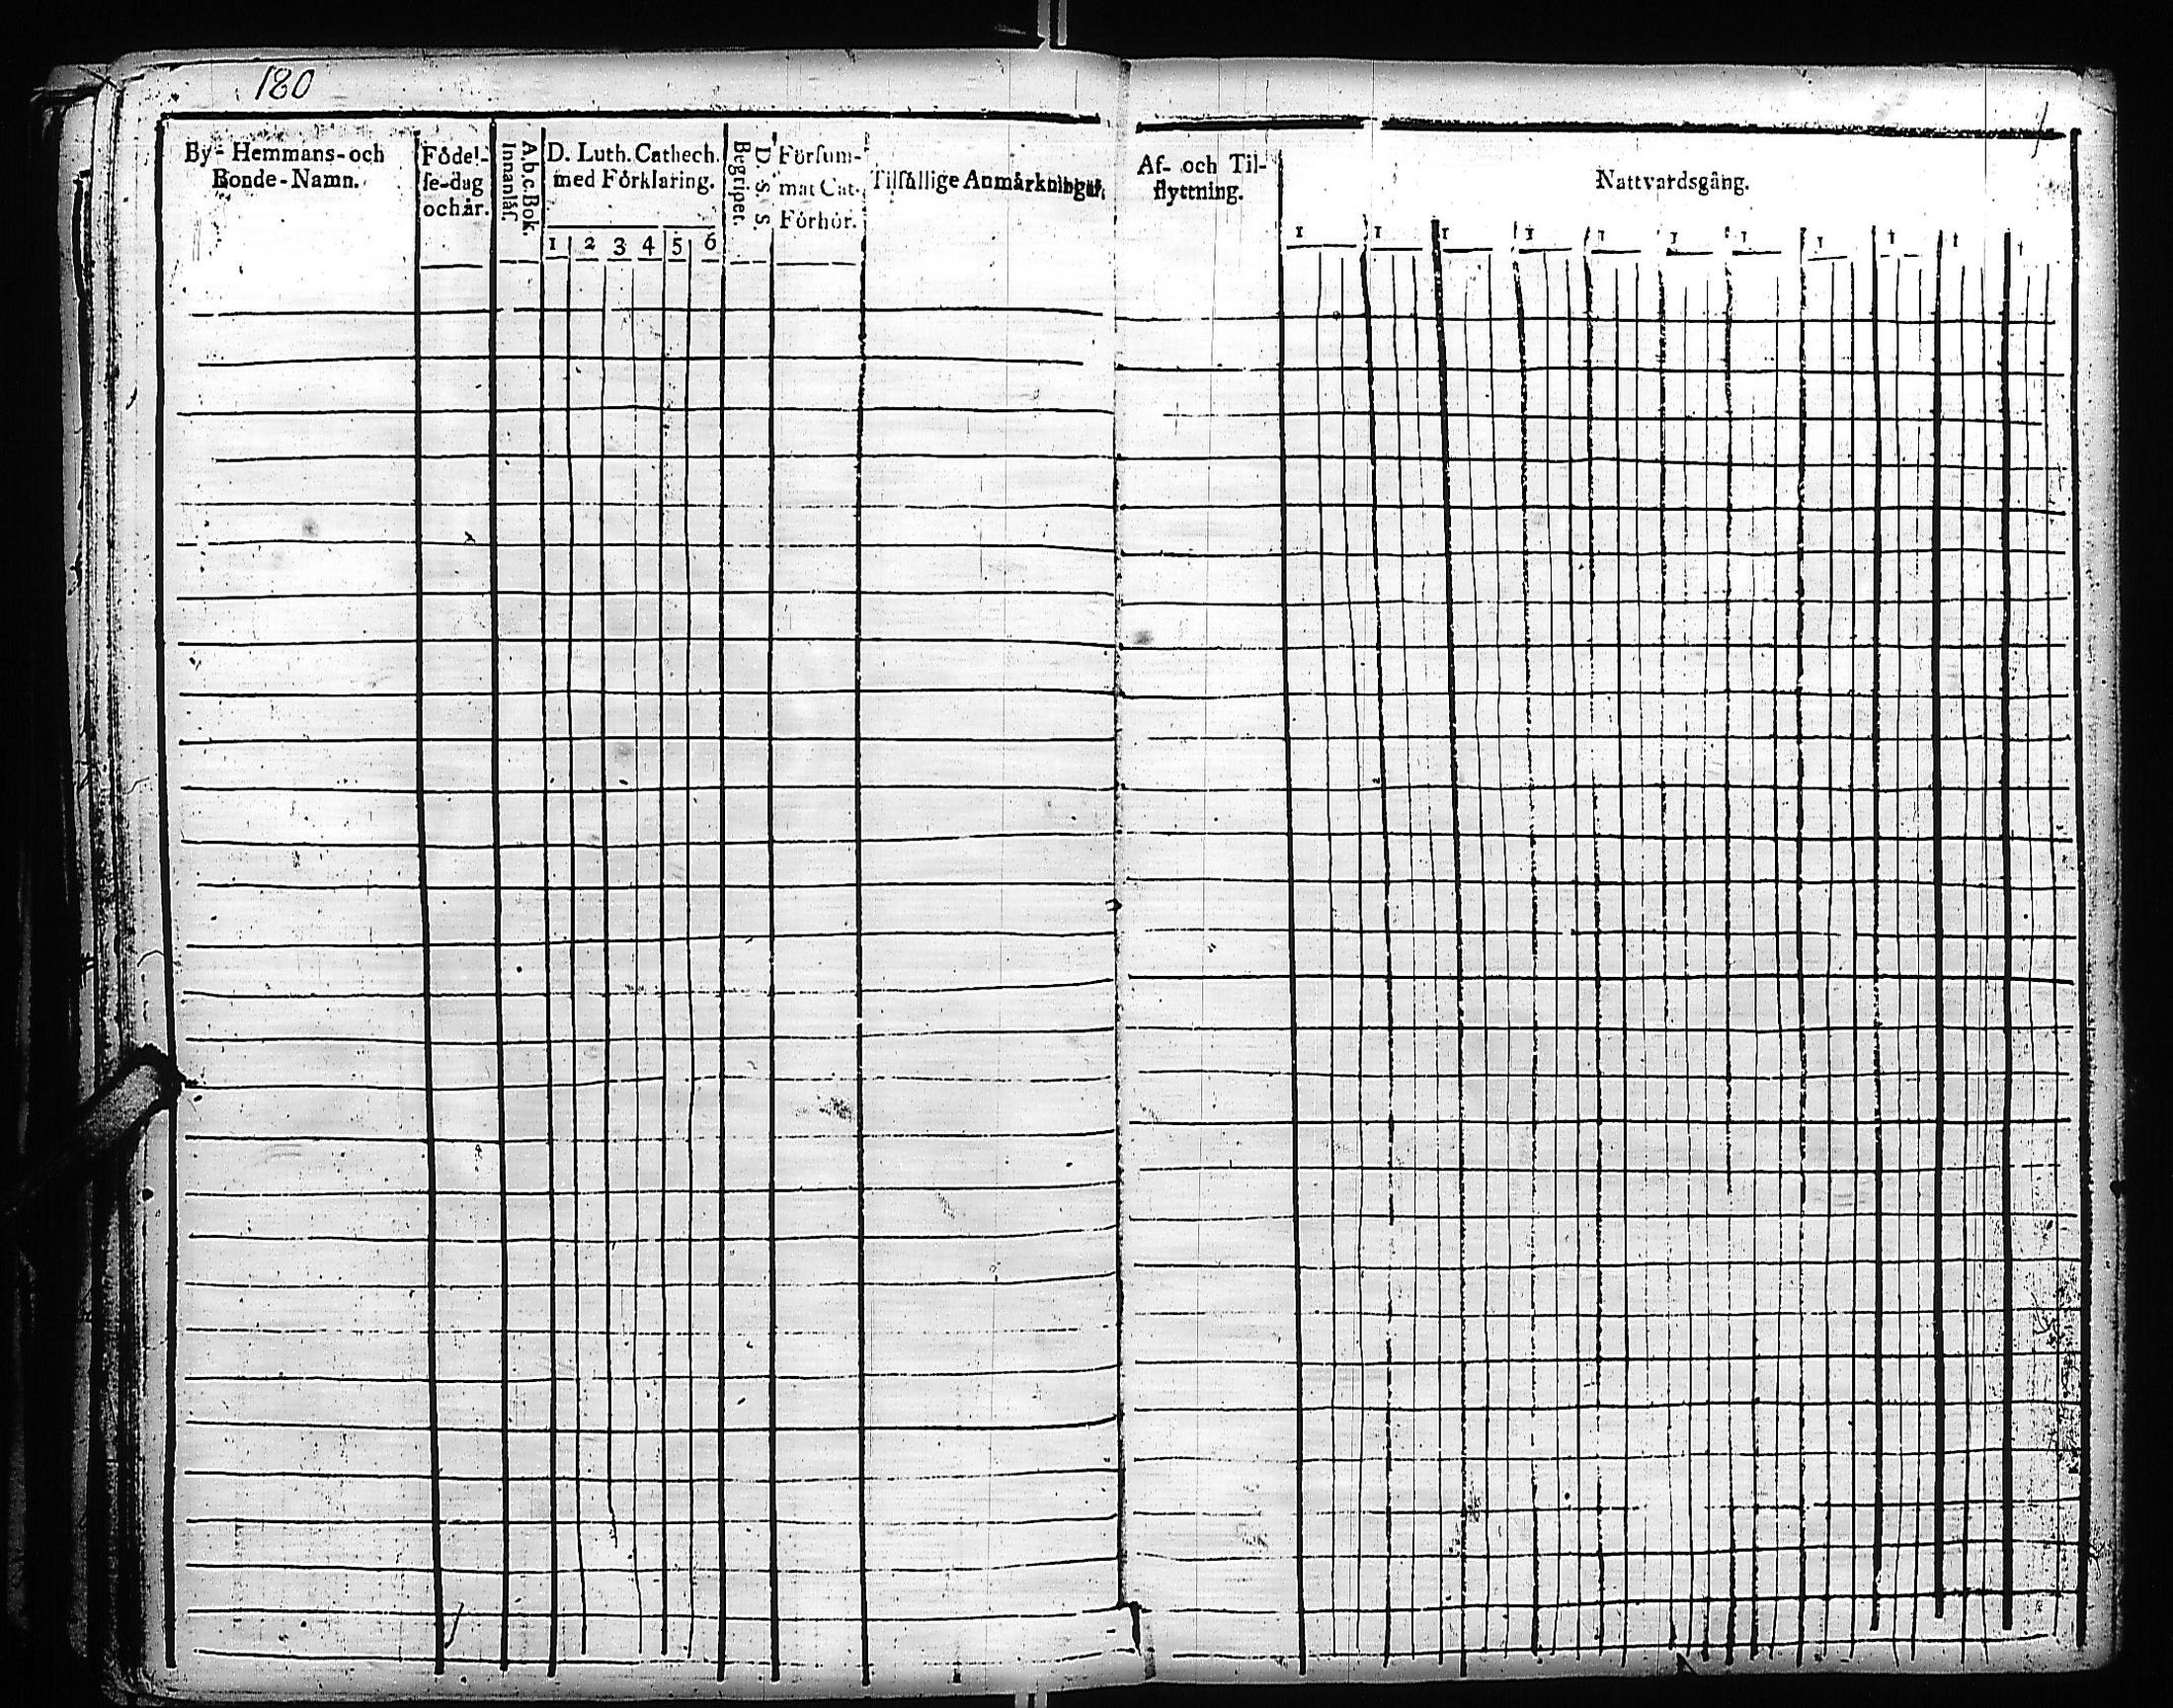 180
By- Hemmans- och
Bonde-Namn.
Födel-
se-dag
och år.
A.b.c.Bok.
Innanläs.
D. Luth. Cathech.
med Förklaring.
1 2 3 4 5 6
D. S. S.
Begripet.
Försum-
mat Cat.
Förhör.
Tilfällige Anmärkningar.
Af- och Til-
flyttning.
Nattvardsgång.
1 1 1 1 1 1 1 1 1 1 1